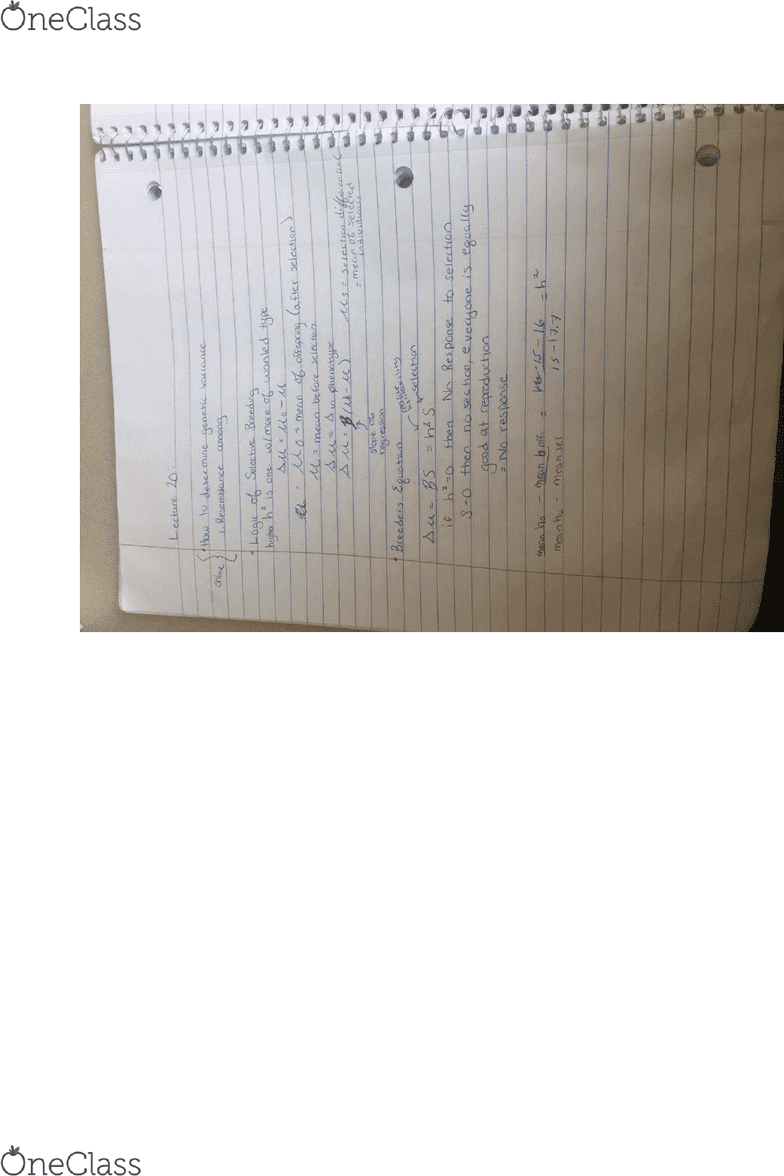 OneClass
Lecture 20:
online { • How to determine genetic variance
1. Resemblance among
• Logic of Selective Breeding
higher h² is one w/more of wanted type
Δμ = μo - μ
μo = mean of offspring (after selection)
μ = mean before selection
Δμ = Δ in phenotype
Δμ = β(μs - μ)
μs = selection differential
= mean of selected
individuals
slope of
regression
• Breeders Equation
selection
Δμ = BS = h²S
if h²=0 then No Response to selection
S=0 then no section, everyone is equally
good at reproduction
= No response
mean ho - mean b off. = 15 - 16 = h²
mean ho - mean sel 15 - 17.7
OneClass